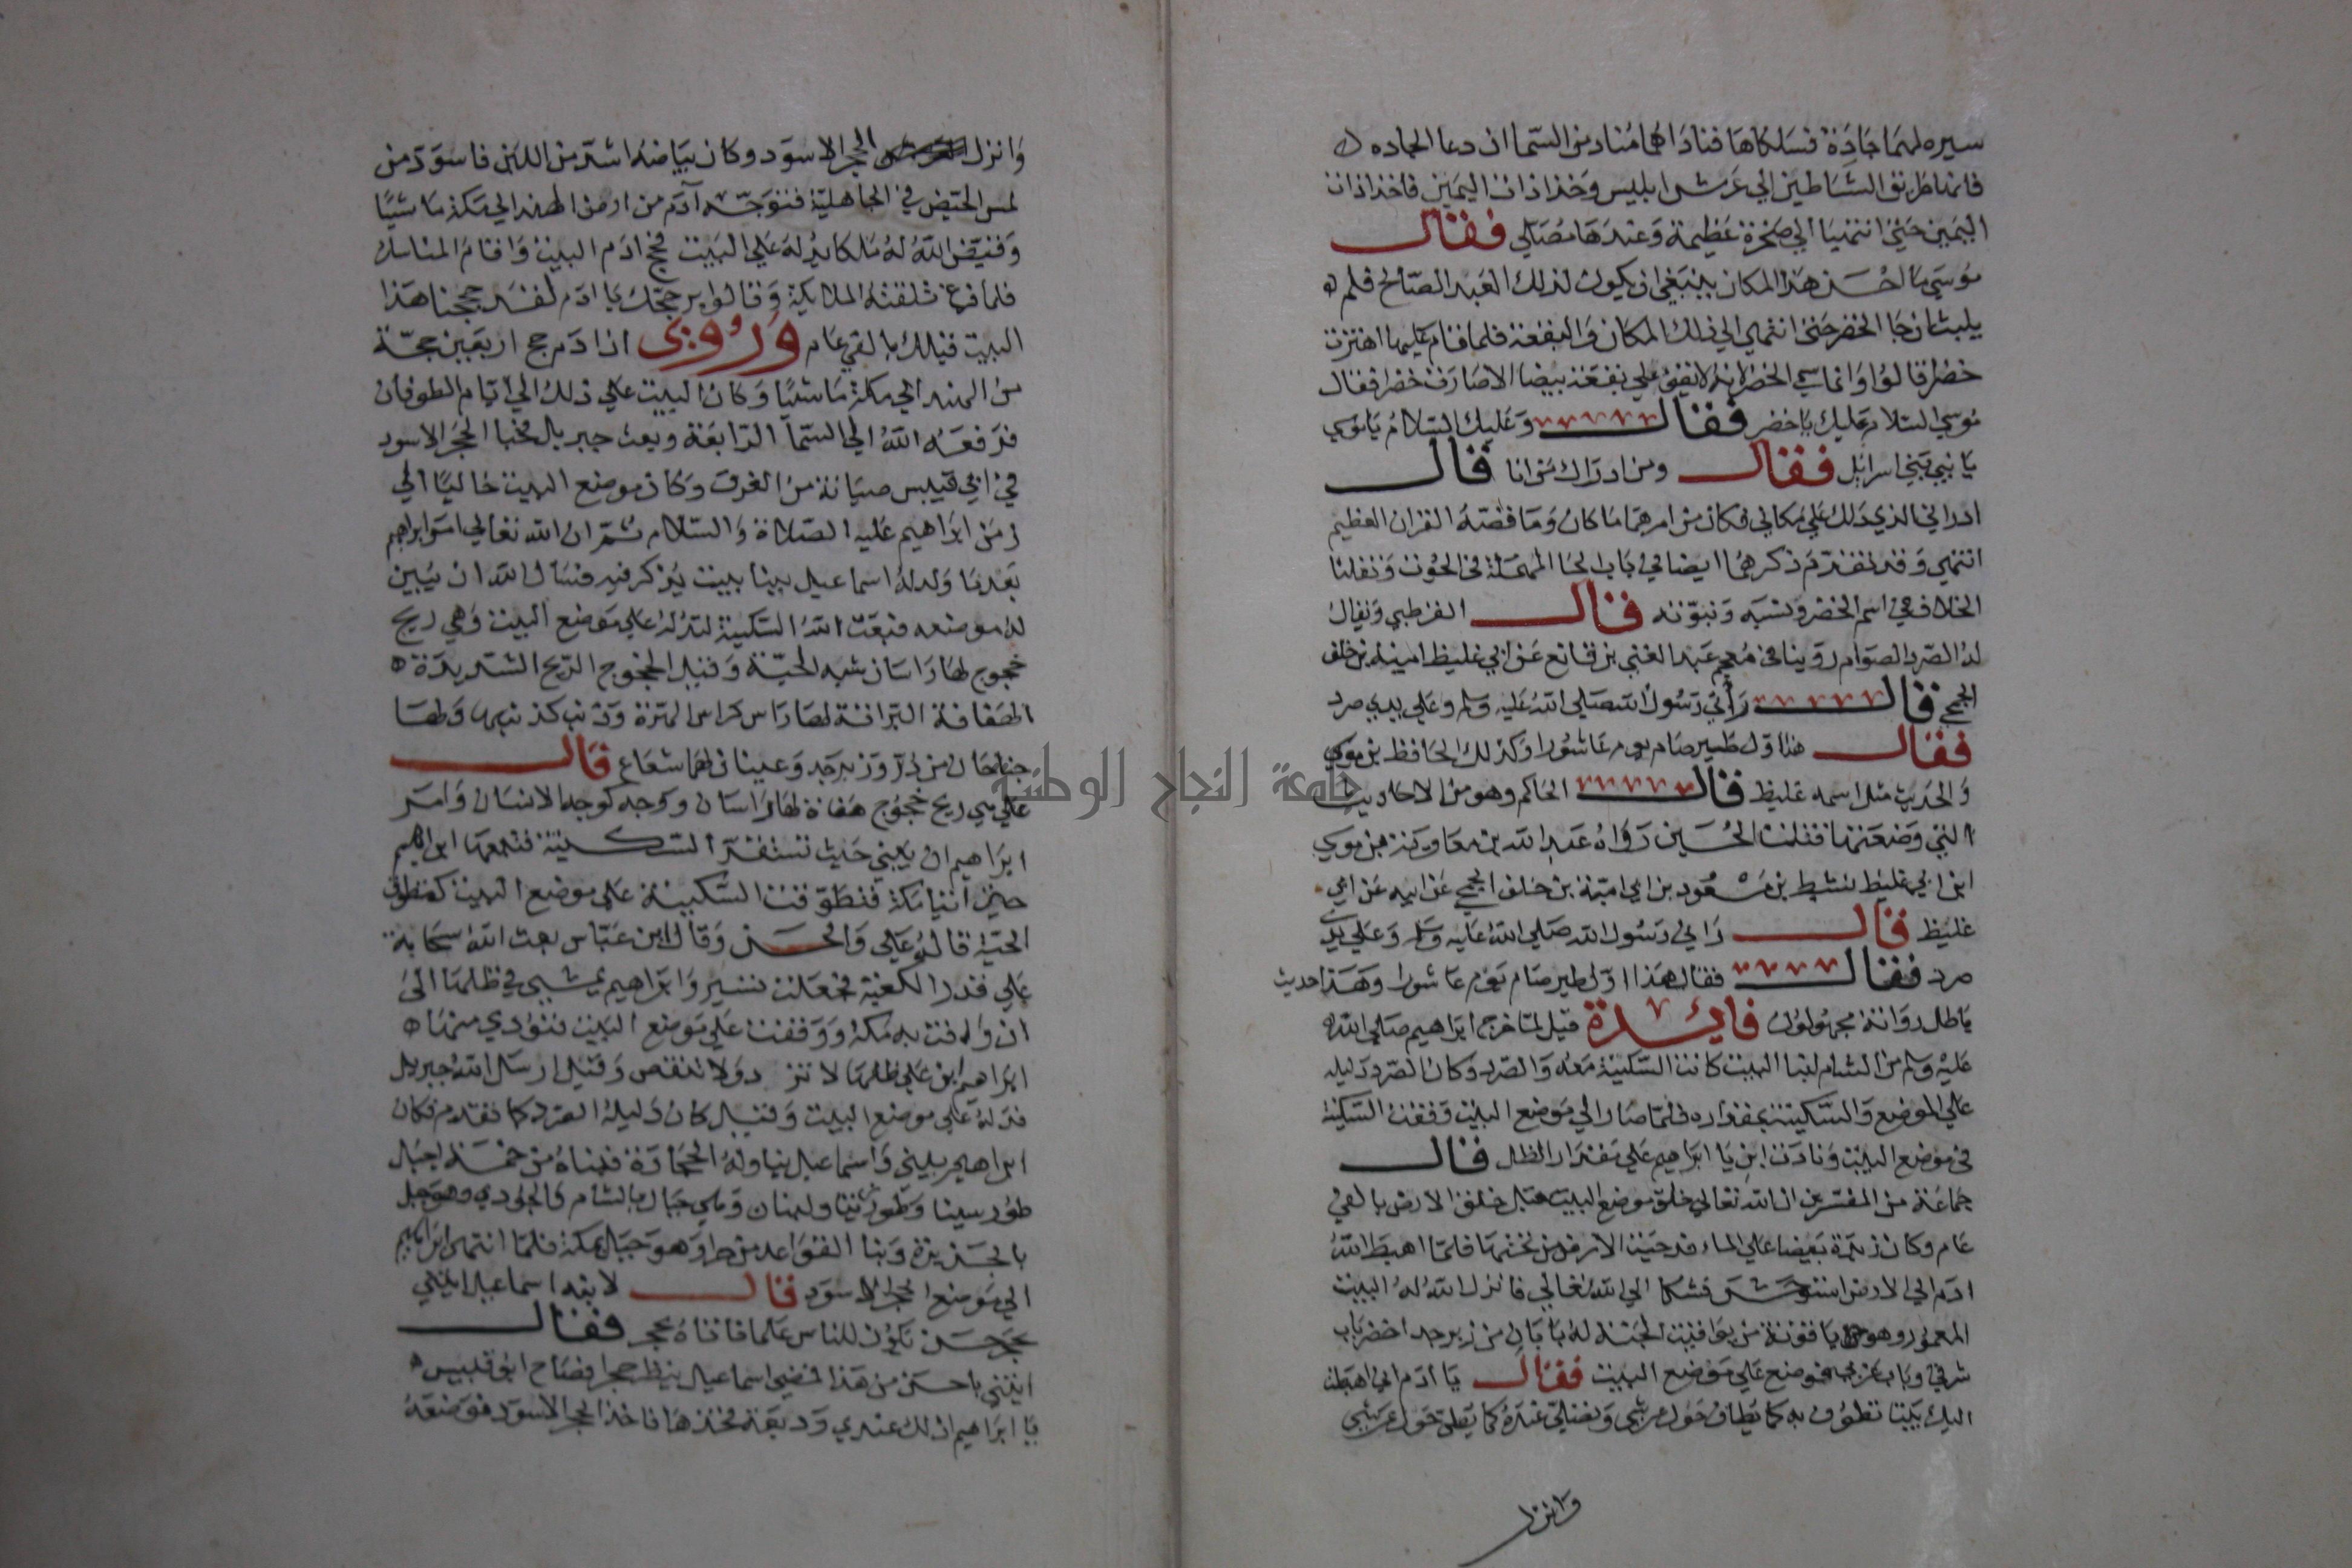 سيره لهما جادة فسلكاها فناداهما مناد من السما ان دعا الجاده
فانها طريق الشياطين الى عرش ابليس وخذا ذات اليمين فاخذا ذات
اليمين حتى انتهيا الي صخرة عظيمة وعندها مصلي فقال
موسي ما احسن هذا المكان ينبغي ان يكون لذلك العبد الصالح فلم
يلبث ان جا الخضر حتى انتهي الي ذلك المكان والبقعة فلما قام عليها اهتزت
خضرا قالوا وانما سمي الخضر لانه لا يقف علي بقعة بيضا الا صارت خضرا فقال
موسي السلام عليك يا خضر فقال وعليك السلام يا موسي
يا نبي بني اسرايل فقال ومن ادراك من انا قال
ادراني الذي دلك علي مكاني فكان من امرهما ما كان وما قصه القران العظيم
انتهي وقد تقدم ذكرهما ايضا في باب الحا المهملة في الحوت ونقلنا
الخلاف في اسم الخضر ونسبه ونبوته قال القرطبي ويقال
له الصرد الصوام روينا في معجم عبد الغني بن قانع عن ابي غليظ امية بن خلف
الجمحي قال رأني رسول الله صلي الله عليه وسلم وعلي يدي صرد
فقال هذا اول طير صام يوم عاشورا وكذلك الحافظ بن موسي
والحديث مثل اسمه غليظ قال الحاكم وهو من الاحاديث
التي وضعتها قتلت الحسين رواه عبد الله بن معاوية بن موسي
ابن ابي غليظ نشيط بن مسعود بن امي امية بن خلف الجمحي عن ابيه عن ابي
غليظ قال راني رسول الله صلي الله عليه وسلم وعلي يدي
صرد فقال فقال هذا اول طير صام يوم عاشورا وهذا حديث
باطل رواته مجهولون فايدة قيل لما خرج ابراهيم صلي الله
عليه وسلم من الشام لبنا البيت كانت السكينة معه والصرد وكان الصرد دليله
علي الموضع والسكينة بمقداره فلما صار الي موضع البيت وقفت السكينة
في موضع البيت ونادت ابن يا ابراهيم علي مقدار الظل قال
جماعة من المفسرين ان الله تعالي خلق موضع البيت قبل خلق الارض بالفي
عام وكان زبدة بيضا علي الماء فدحيت الارض من تحتها فلما اهبط الله
ادم الي الارض استوحش فشكا الي الله تعالي فانزل الله له البيت
المعمور وهو من ياقوتة من يواقيت الجنة له بابان من زبرجد اخضر باب
شرقي وباب غربي فوضع علي موضع البيت فقال يا ادم اني اهبطت
اليك بيتا تطوف به كما يطاف حول عرشي وتصلي عنده كما يصلي حول عرشي
وانزل
وانزل الحجر الاسود وكان بياضه اشد من اللبن فاسود من
لمس الحيض في الجاهلية فتوجه آدم من ارض الهند الي مكة ماشيا
وقيض الله له ملكا يدله علي البيت فحج ادم البيت واقام المناسك
فلما فرغ تلقته الملايكة وقالوا بر حجك يا ادم لقد حججنا هذا
البيت قبلك بالفي عام وروي ان ادم حج اربعين حجة
من الهند الي مكة ماشيا وكان البيت علي ذلك الي ايام الطوفان
فرفعه الله الي السما الرابعة وبعث جبريل فخبا الحجر الاسود
في ابي قبيس صيانة من الغرق وكان موضع البيت خاليا الي
زمن ابراهيم عليه الصلاة والسلام ثم ان الله تعالي امر ابراهيم
بعدما ولد له اسماعيل ببنا بيت يذكر فيه فسال الله ان يبين
له موضعه فبعث الله السكينة لتدله علي موضع البيت وهي ريح
خجوج لها راسان شبه الحية وقيل الخجوج الريح الشديدة
الهفافة البراقة لها راس كراس الهرة وذنب كذنبها ولها
جناحان من در وزبرجد وعينان لهما شعاع قال
علي هي ريح خجوج هفافة لها راسان ووجه كوجه الانسان وامر
ابراهيم ان يبني حيث تستقر السكينة فتبعها ابراهيم
حتى أتيا مكة فتطوقت السكينة علي موضع البيت كتطوق
الحية قاله علي والحسن وقال ابن عباس بعث الله سحابة
علي قدر الكعبة فجعلت تسير وابراهيم يمشي في ظلها الى
ان وافت به مكة ووقفت علي موضع البيت فنودي منها
ابراهيم ابن علي ظلها لا تزد ولا تنقص وقيل ارسل الله جبريل
فدله علي موضع البيت وقيل كان دليله الصرد كما تقدم فكان
ابراهيم يبني واسماعيل يناوله الحجارة فبناه من خمسة اجبال
طور سينا وطور زيتا ولبنان وهي جبال بالشام والجودي وهو جبل
بالجزيرة وبنا القواعد من حرا وهو جبل بمكة فلما انتهي ابراهيم
الي موضع الحجر الاسود قال لابنه اسماعيل ايتني
بحجر حسن يكون للناس علما فاتاه بحجر فقال
ايتني باحسن من هذا فمضي اسماعيل ينظر حجرا فصاح ابو قبيس
يا ابراهيم ان لك عندي وديعة فخذها فاخذ الحجر الاسود فوضعه
جامعة النجاح الوطنية